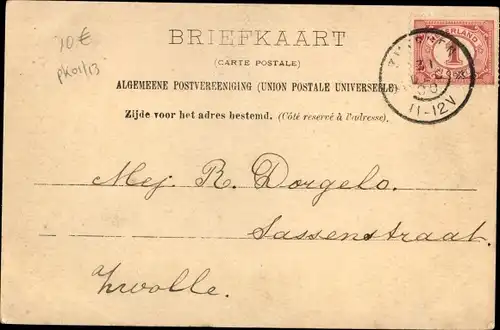 10 €
pk01/13
BRIEFKAART
(CARTE POSTALE)
ALGEMEENE POSTVEREENIGING (UNION POSTALE UNIVERSELLE)
Zijde voor het adres bestemd. (Côté reservé à l'adresse).
NEDERLAND
1
31
11-12V
Mej. R. Dorgelo.
Sassenstraat.
Zwolle.